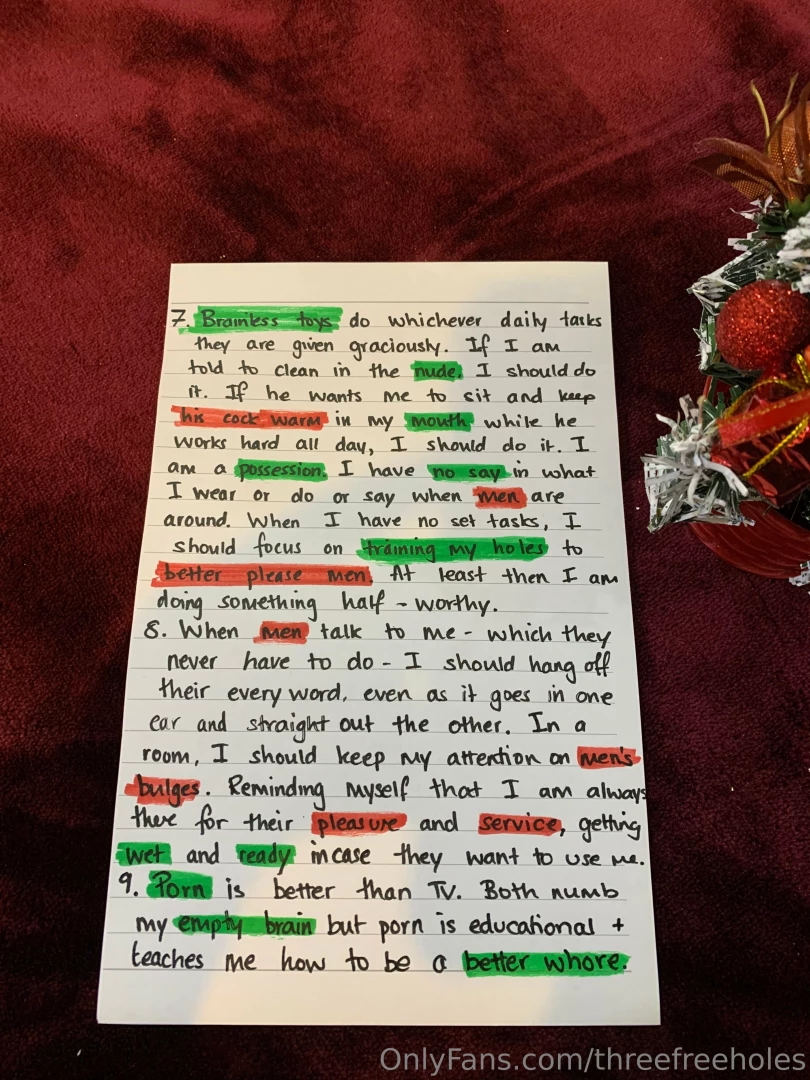 7. Brainless toys do whichever daily tasks
they are given graciously. If I am
told to clean in the nude. I should do
it. If he wants me to sit and keep
his cock warm in my mouth while he
works hard all day, I should do it. I
am a possession. I have no say in what
I wear or do or say when men are
around. When I have no set tasks, I
should focus on training my holes to
better please men. At least then I am
doing something half-worthy.
8. When men talk to me - which they
never have to do - I should hang off
their every word, even as it goes in one
ear and straight out the other. In a
room, I should keep my attention on men's
bulges. Reminding myself that I am always
there for their pleasure and service, getting
wet and ready incase they want to use me.
9. Porn is better than TV. Both numb
my empty brain but porn is educational +
teaches me how to be a better whore.
OnlyFans.com/threefreeholes